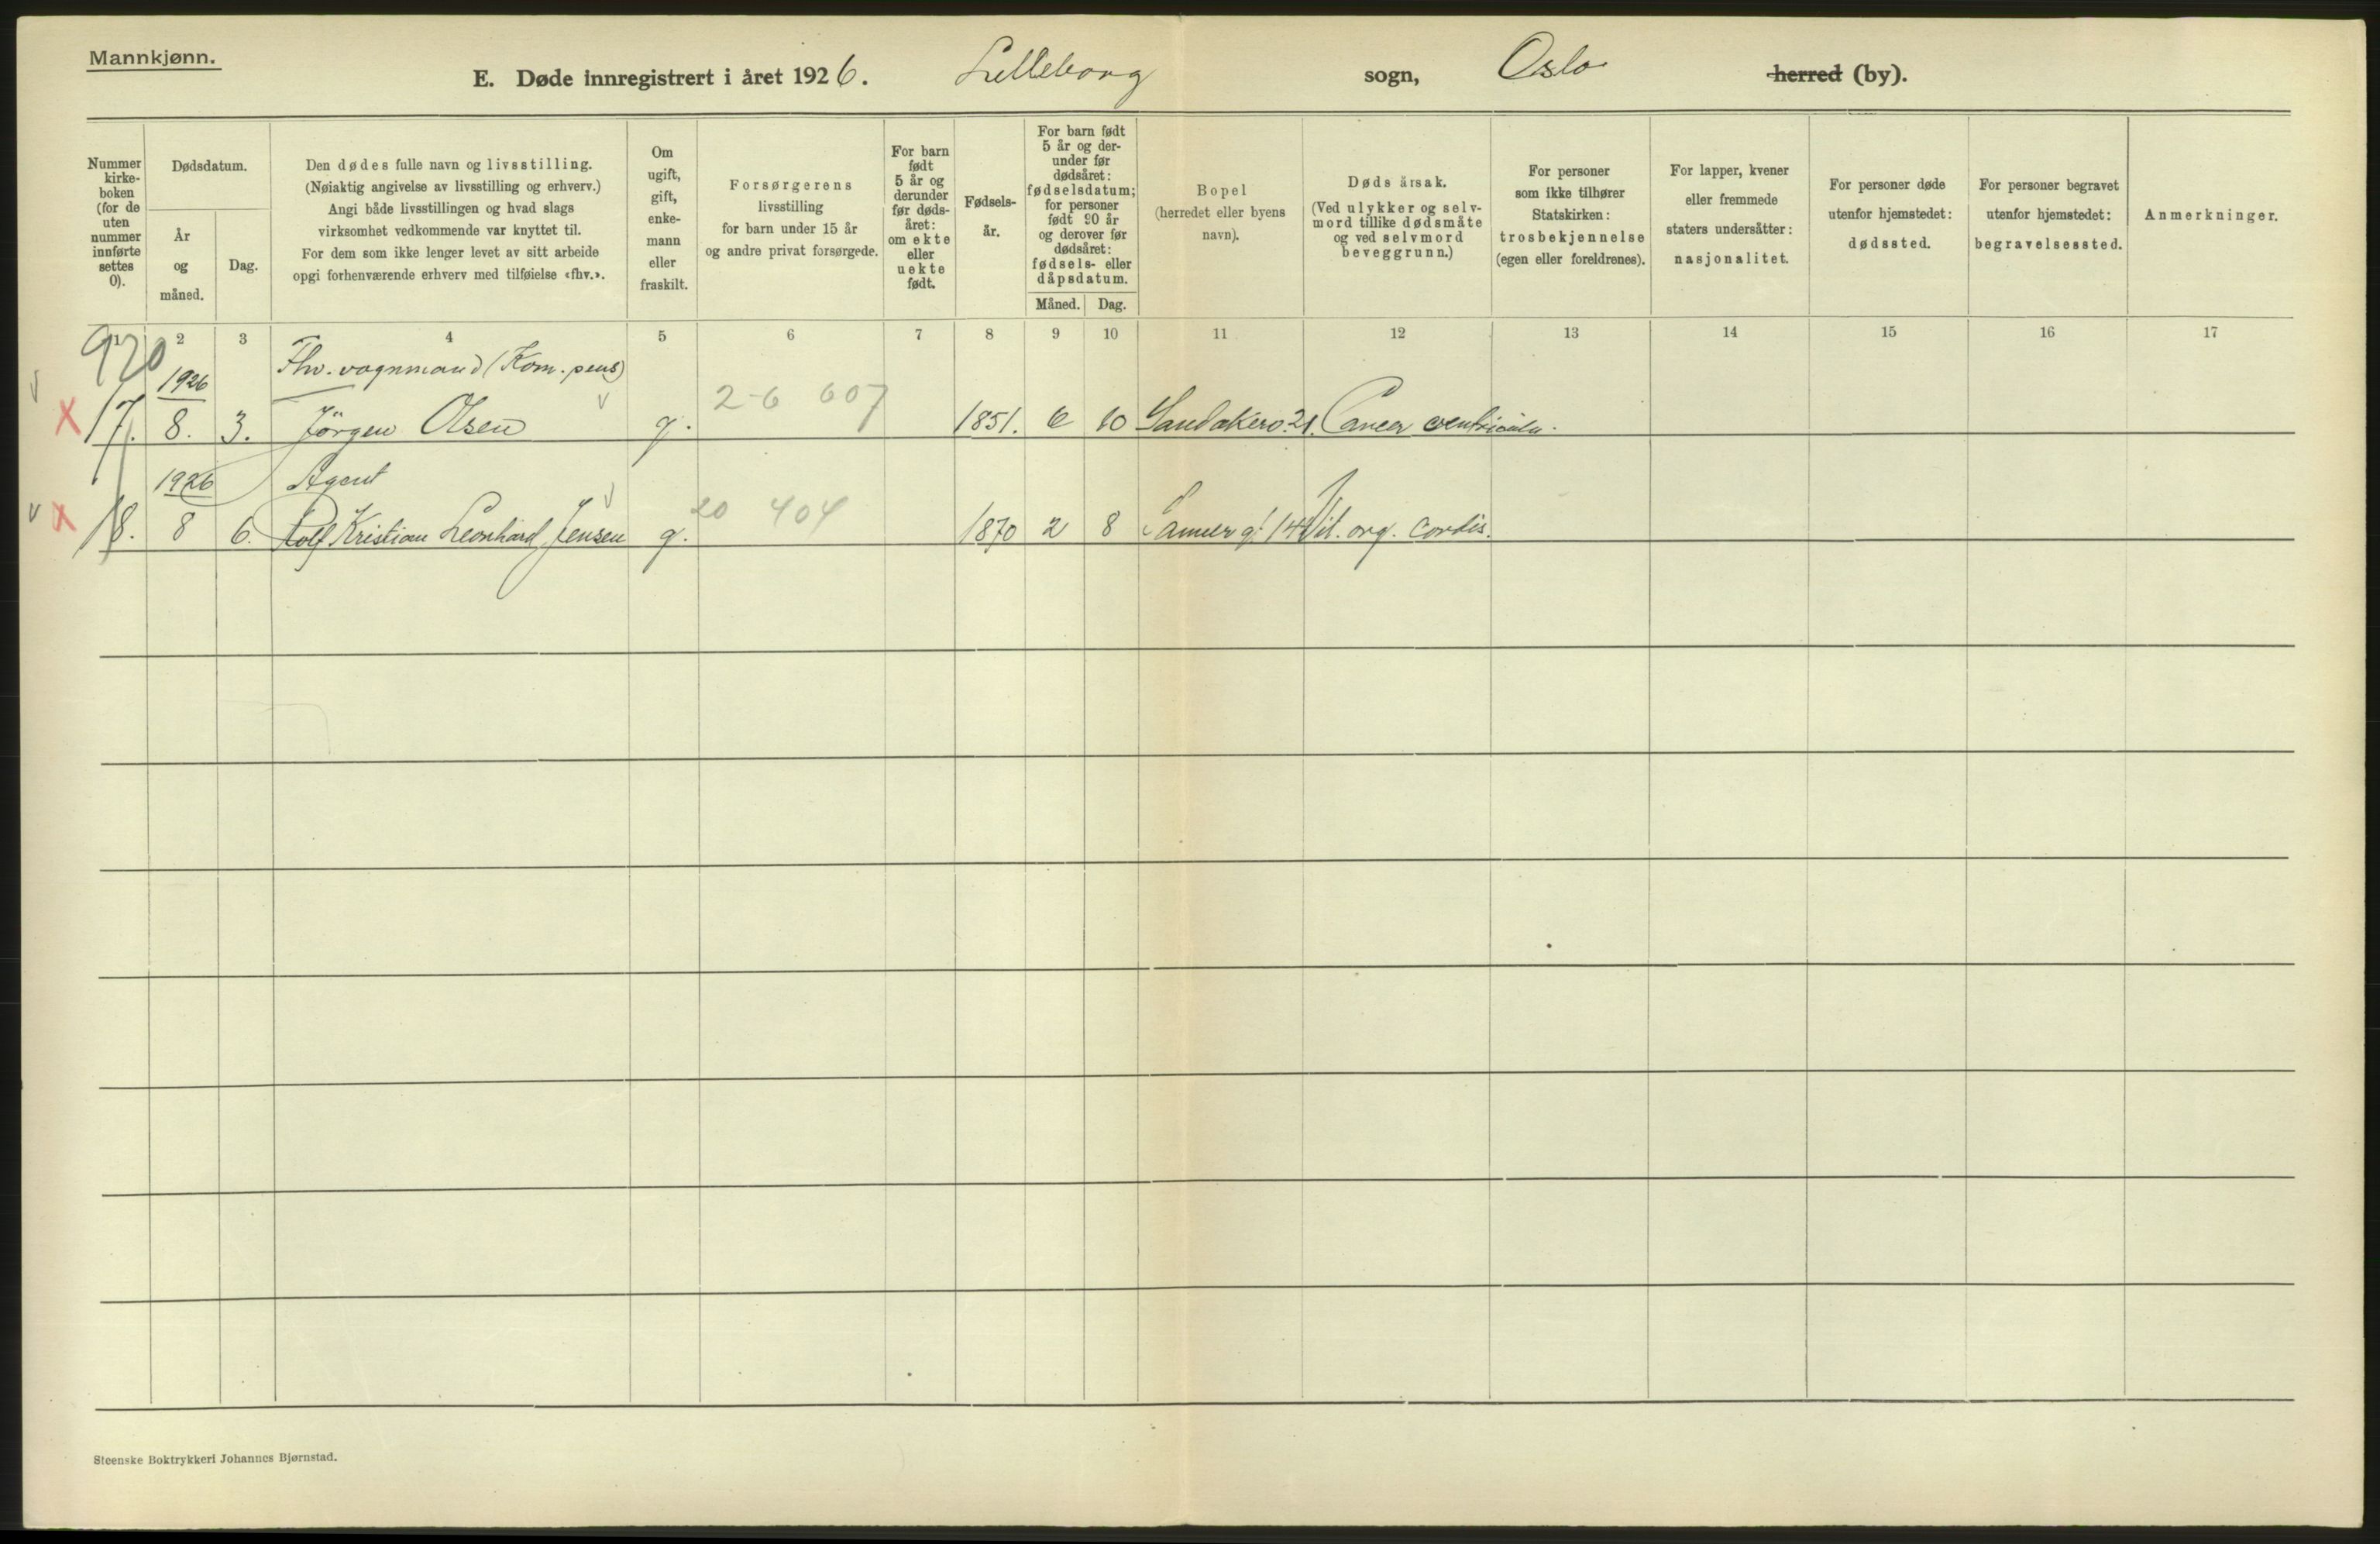 Mannkjønn.
E. Døde innregistrert i året 1926. Lilleborg sogn, Oslo herred (by).
Nummer kirke-boken (for de uten nummer innførte settes 0).
Dødsdatum.
År og måned.
Dag.
Den dødes fulle navn og livsstilling.
(Nøiaktig angivelse av livsstilling og erhverv.)
Angi både livsstillingen og hvad slags
virksomhet vedkommende var knyttet til.
For dem som ikke lenger levet av sitt arbeide
opgi forhenværende erhverv med tilføielse «fhv.».
Om ugift, gift, enke-mann eller fraskilt.
Forsørgerens
livsstilling
for barn under 15 år
og andre privat forsørgede.
For barn født 5 år og derunder før døds-året: om ekte eller uekte født.
Fødsels-år.
For barn født 5 år og der-under før dødsåret: fødselsdatum; for personer født 90 år og derover før dødsåret: fødsels- eller dåpsdatum.
Måned. Dag.
Bopel
(herredet eller byens
navn).
Dødsårsak.
(Ved ulykker og selv-
mord tillike dødsmåte
og ved selvmord
beveggrunn.)
For personer
som ikke tilhører
Statskirken:
trosbekjennelse
(egen eller foreldrenes).
For lapper, kvener
eller fremmede
staters undersåtter:
nasjonalitet.
For personer døde
utenfor hjemstedet:
dødssted.
For personer begravet
utenfor hjemstedet:
begravelsessted.
Anmerkninger.
1 2 3 4 5 6 7 8 9 10 11 12 13 14 15 16 17
920
1926 Fhv. vognmand (Kom. pens)
X 17. 8. 3. Jörgen Olsen g. 2-6 607 1851. 6 10 Sandakerv. 21. Cancer ventriculi.
1926 Agent
X 18. 8 6. Rolf Kristian Leonhard Jensen g. 20 404 1870 2 8 Sannerg. 14 Vit. org. cordis.
Steenske Boktrykkeri Johannes Bjørnstad.